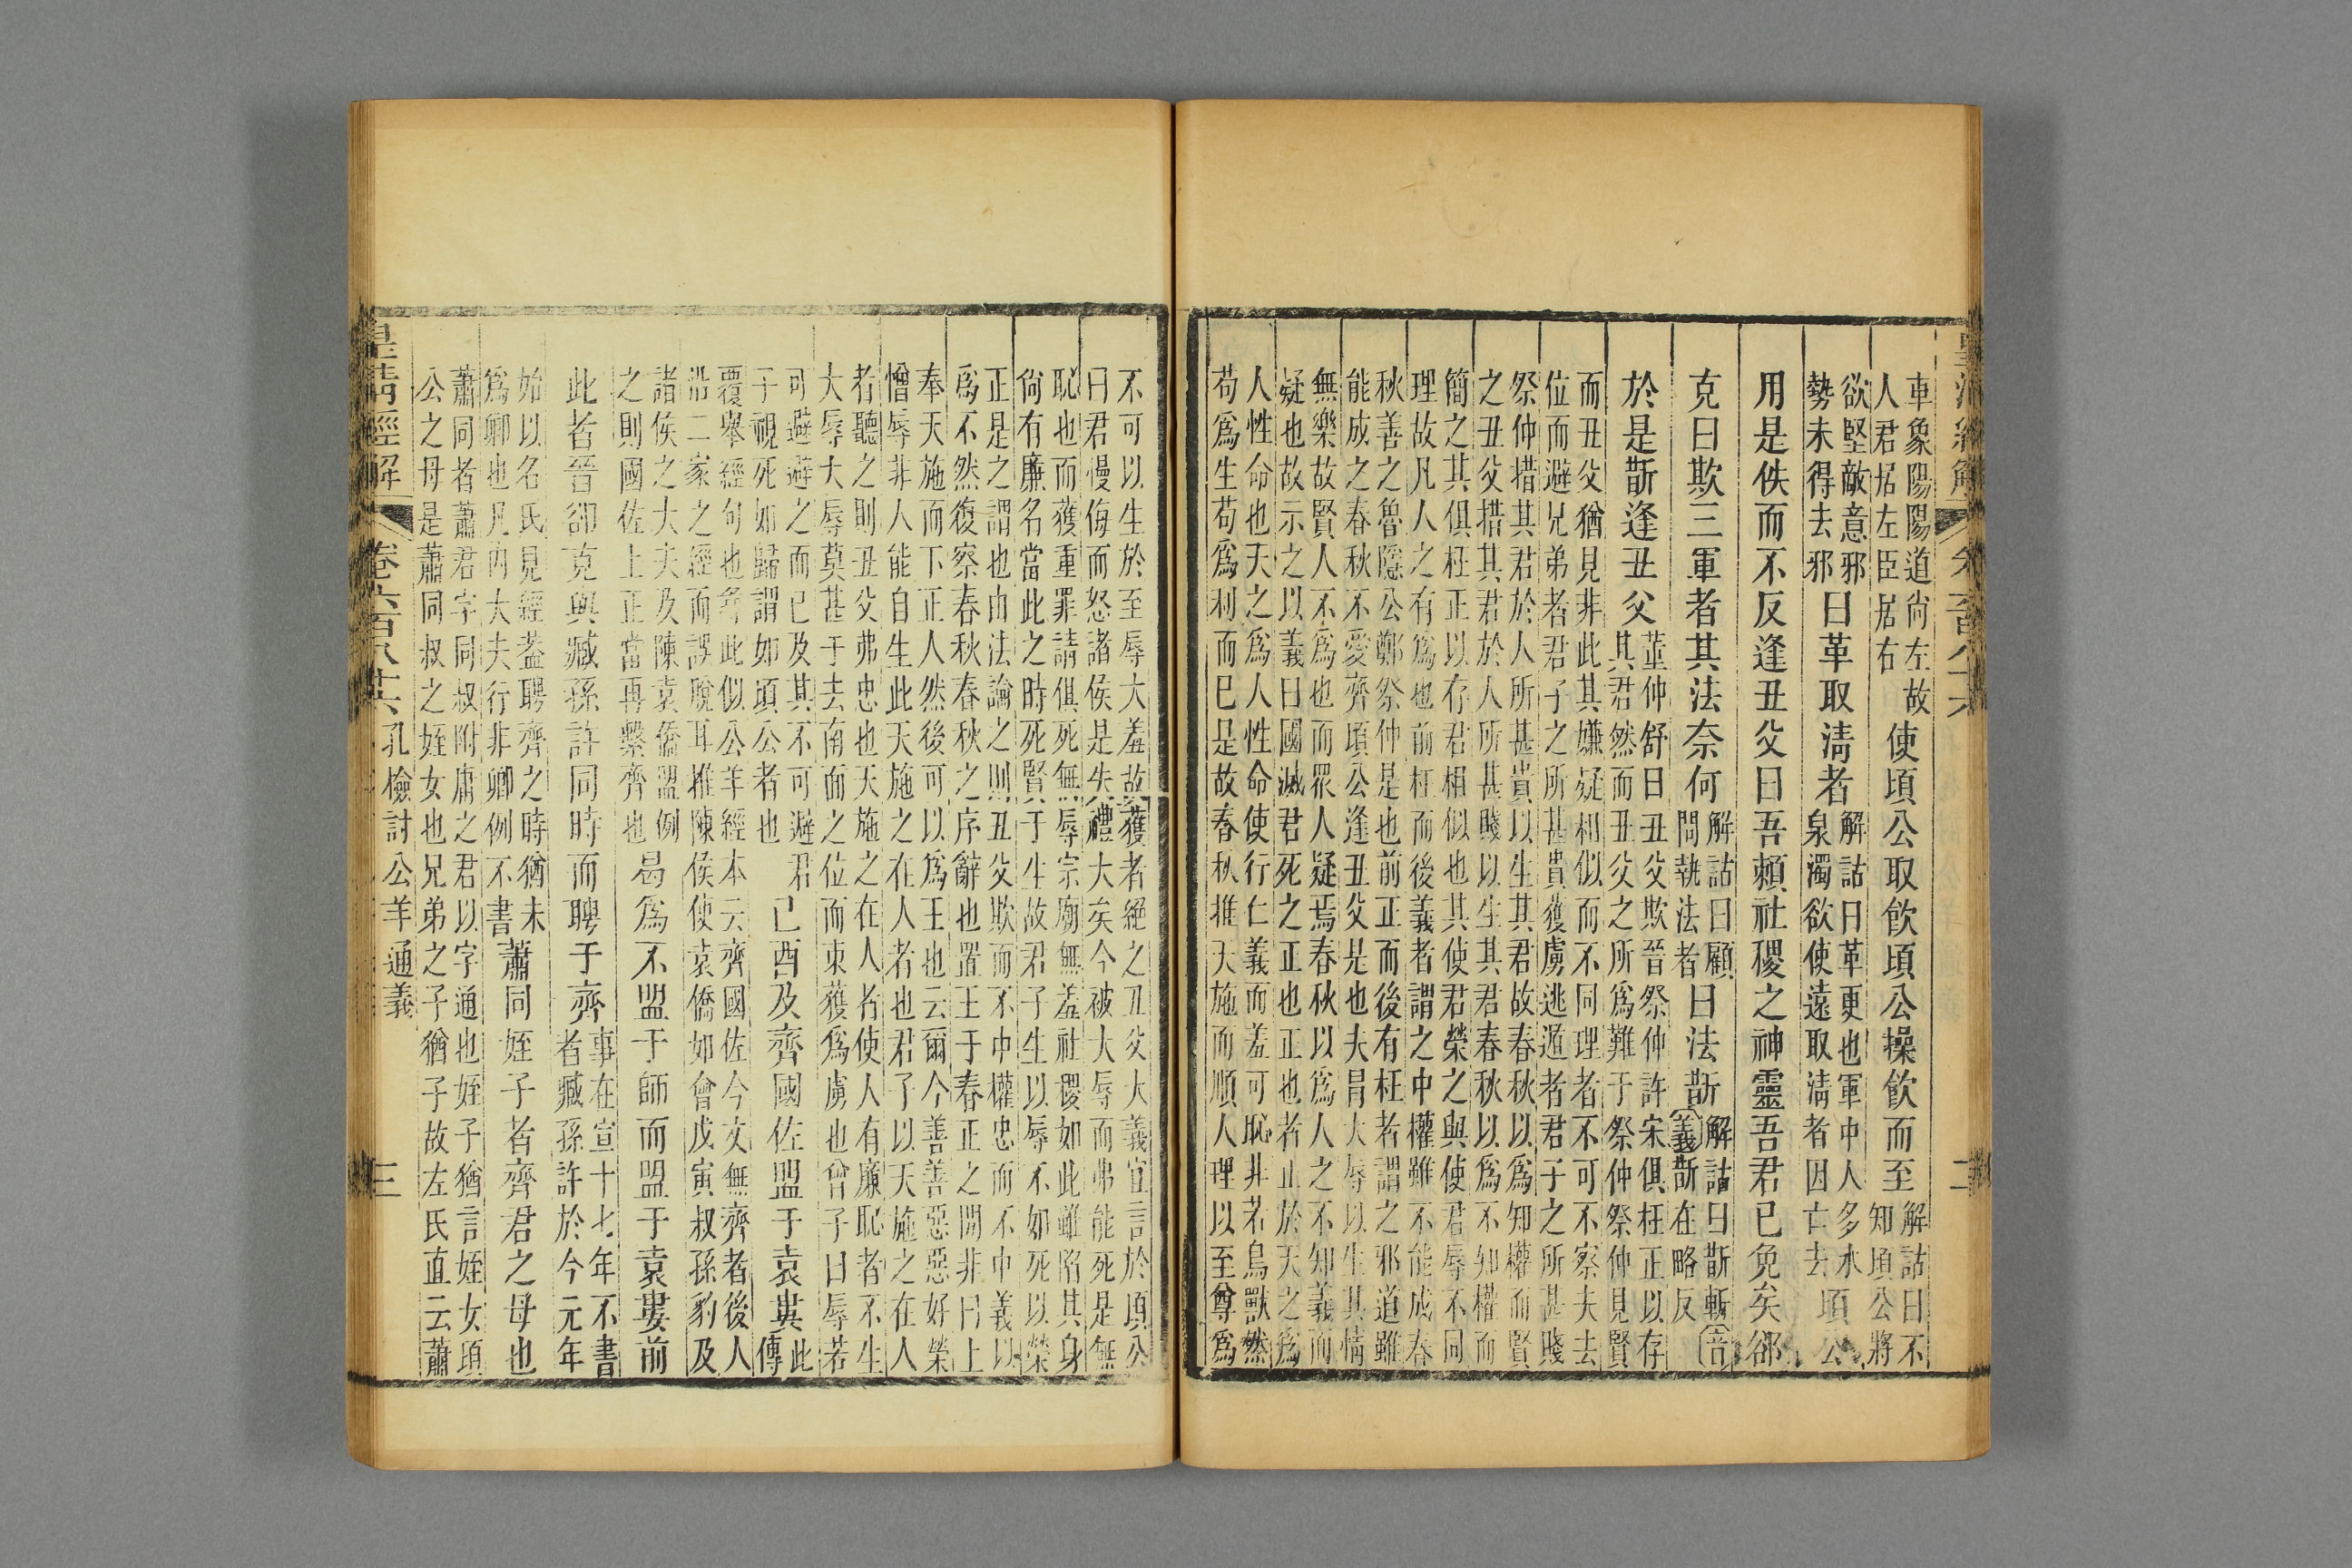 皇清經解 卷六百八十六 二
車象陽陽道尚左故
人君居左臣居右
使頃公取飲頃公操飲而至
解詁曰不
知頃公將
欲堅敵意邪
勢未得去邪
曰革取清者
解詁曰革更也軍中人多水
泉濁欲使遠取清者因亡去
頃公
用是佚而不反逢丑父曰吾賴社稷之神靈吾君已免矣郤
克曰欺三軍者其法奈何
解詁曰顧
問執法者
曰法斮
解詁曰斮斬音
義斮在略反
於是斮逢丑父
董仲舒曰丑父欺晉祭仲許宋俱枉正以存
其君然而丑父之所爲難于祭仲祭仲見賢
而丑父猶見非此其嫌疑相似而不同理者不可不察夫去
位而避兄弟者君子之所甚貴獲虜逃遁者君子之所甚賤
祭仲措其君於人所甚貴以生其君故春秋以爲知權而賢
之丑父措其君於人所甚賤以生其君春秋以爲不知權而
簡之其俱枉正以存君相似也其使君榮之與使君辱不同
理故凡人之有爲也前枉而後義者謂之中權雖不能成春
秋善之魯隱公鄭祭仲是也前正而後有枉者謂之邪道雖
能成之春秋不愛齊頃公逢丑父是也夫冒大辱以生其情
無樂故賢人不爲也而眾人疑焉春秋以爲人之不知義而
疑也故示之以義曰國滅君死之正也正也者正於天之爲
人性命也天之爲人性命使行仁義而羞可恥非若鳥獸然
苟爲生苟爲利而已是故春秋推天施而順人理以至尊爲
不可以生於至辱大羞故獲者絕之丑父大義宜言於頃公
曰君慢侮而怒諸侯是失禮大矣今被大辱而弗能死是無
恥也而獲重罪請俱死無辱宗廟無羞社稷如此雖陷其身
尚有廉名當此之時死賢于生故君子生以辱不如死以榮
正是之謂也由法論之則丑父欺而不中權忠而不中義以
爲不然復察春秋春秋之序辭也置王于春正之間非曰上
奉天施而下正人然後可以爲王也云爾今善善惡惡好榮
憎辱非人能自生此天施之在人者也君了以天施之在人
者聽之則丑父弗忠也天施之在人者使人有廉恥者不生
大辱大辱莫甚于去南面之位而束獲爲虜也曾子曰辱若
可避避之而已及其不可避君
子視死如歸謂如頃公者也
已酉及齊國佐盟于袁婁
此
傳
覆舉經句也旁此似公羊經本云齊國佐今文無齊者後人
沿二家之經而誤脫耳推陳侯使袁僑如會戊寅叔孫豹及
諸侯之大夫及陳袁僑盟例
之則國佐上正當再繫齊也
曷爲不盟于師而盟于袁婁前
此者晉郤克與臧孫許同時而聘于齊
事在宣十七年不書
者臧孫許於今元年
始以名氏見經蓋聘齊之時猶未
爲卿也凡內大夫行非卿例不書
蕭同姪子者齊君之母也
蕭同者蕭君字同叔附庸之君以字通也姪子猶言姪女頃
公之母是蕭同叔之姪女也兄弟之子猶子故左氏直云蕭
皇清經解 卷六百八十六 孔檢討公羊通義 三